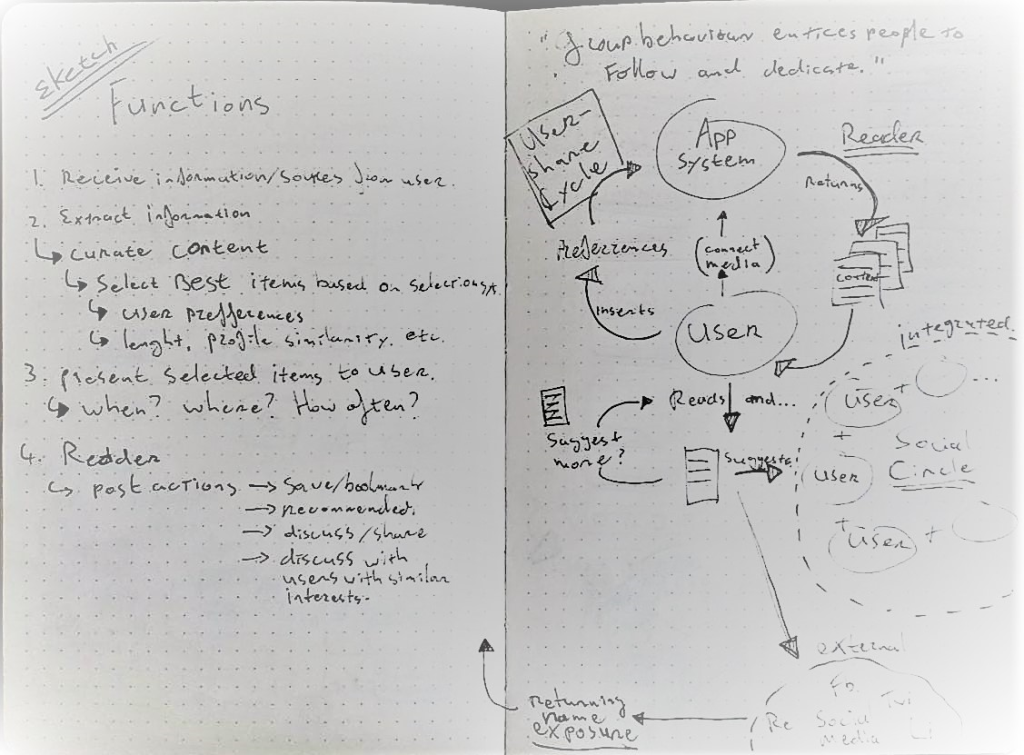 Sketch
Functions
1. Receive information/sources from user.
2. Extract information
↳ curate content
↳ Select Best items based on selections
↳ user prefferences
↳ lenght, profile similarity, etc.
3. present selected items to user.
↳ when? where? How often?
4. Reader
↳ post actions → save/bookmark
→ recommended.
→ discuss/share
→ discuss with
users with similar
interests.
"Group behaviour entices people to
Follow and dedicate."
User-
share
cycle
App
System
Reader
Returns
Preferiences
(connect
media)
content
inserts
User
integrated.
Reads and...
User + ...
Suggest
more?
Suggests
+
Social
Circle
User
+
User +
external
Fa
Twi
Re
Social
Media
Li
Returning
name
exposure